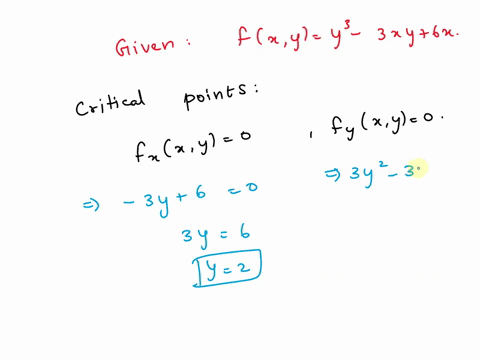 Given: f(x,y)=y³- 3xy+6x.
Critical points:
fx(x,y)=0 , fy(x,y)=0.
⇒ -3y+6 =0 ⇒ 3y²-3
3y = 6
y=2